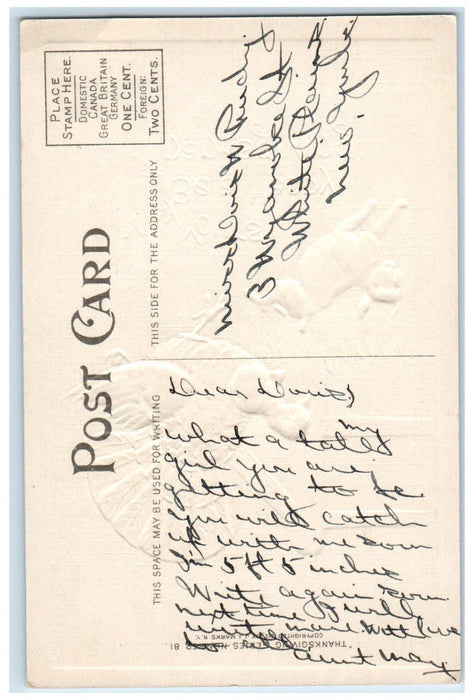 PLACE
STAMP HERE.
DOMESTIC
CANADA
GREAT BRITAIN
GERMANY
ONE CENT.
FOREIGN:
TWO CENTS.
POST CARD
THIS SPACE MAY BE USED FOR WRITING
THIS SIDE FOR THE ADDRESS ONLY
Dear Doris,
what a tall my
girl you are
getting to be
you will catch
up with me soon
I'm 5 ft 5 inches
Write again soon
next time I will
write more with love
Aunt May
Miss Doris
3
St
White Plains
New York
THANKSGIVING SERIES NUMBER 81.
COPYRIGHTED J. MARKS. N.Y.